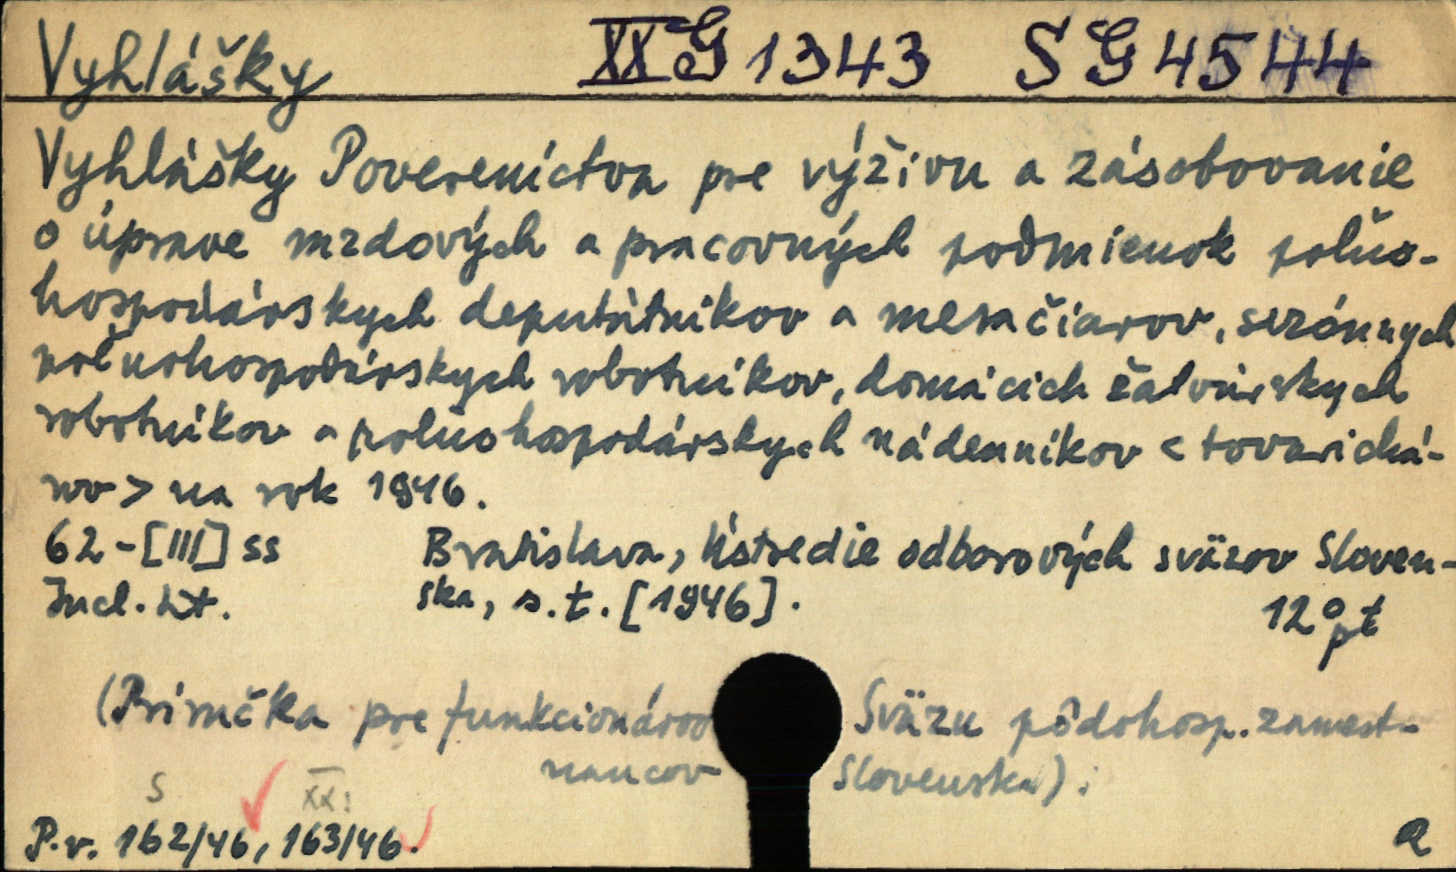 Vyhlášky XX G 1343 S G 4544
Vyhlášky Povereníctva pre výživu a zásobovanie
o úprave mzdových a pracovných podmienok poľno-
hospodárskych deputátnikov a mesačiarov, sezónnych
poľnohospodárskych robotníkov, domácich žatvárskych
robotníkov a poľnohospodárskych nádenníkov <tovarichá-
rov> na rok 1946.
62-[III] ss Bratislava, Ústredie odborových sväzov Sloven-
Incl. tit. ska, s. t. [1946]. 12° pt
(Príručka pre funkcionárov Sväzu pôdohosp. zamest-
nancov Slovenska).
S XX:
P.v. 162/46, 163/46.